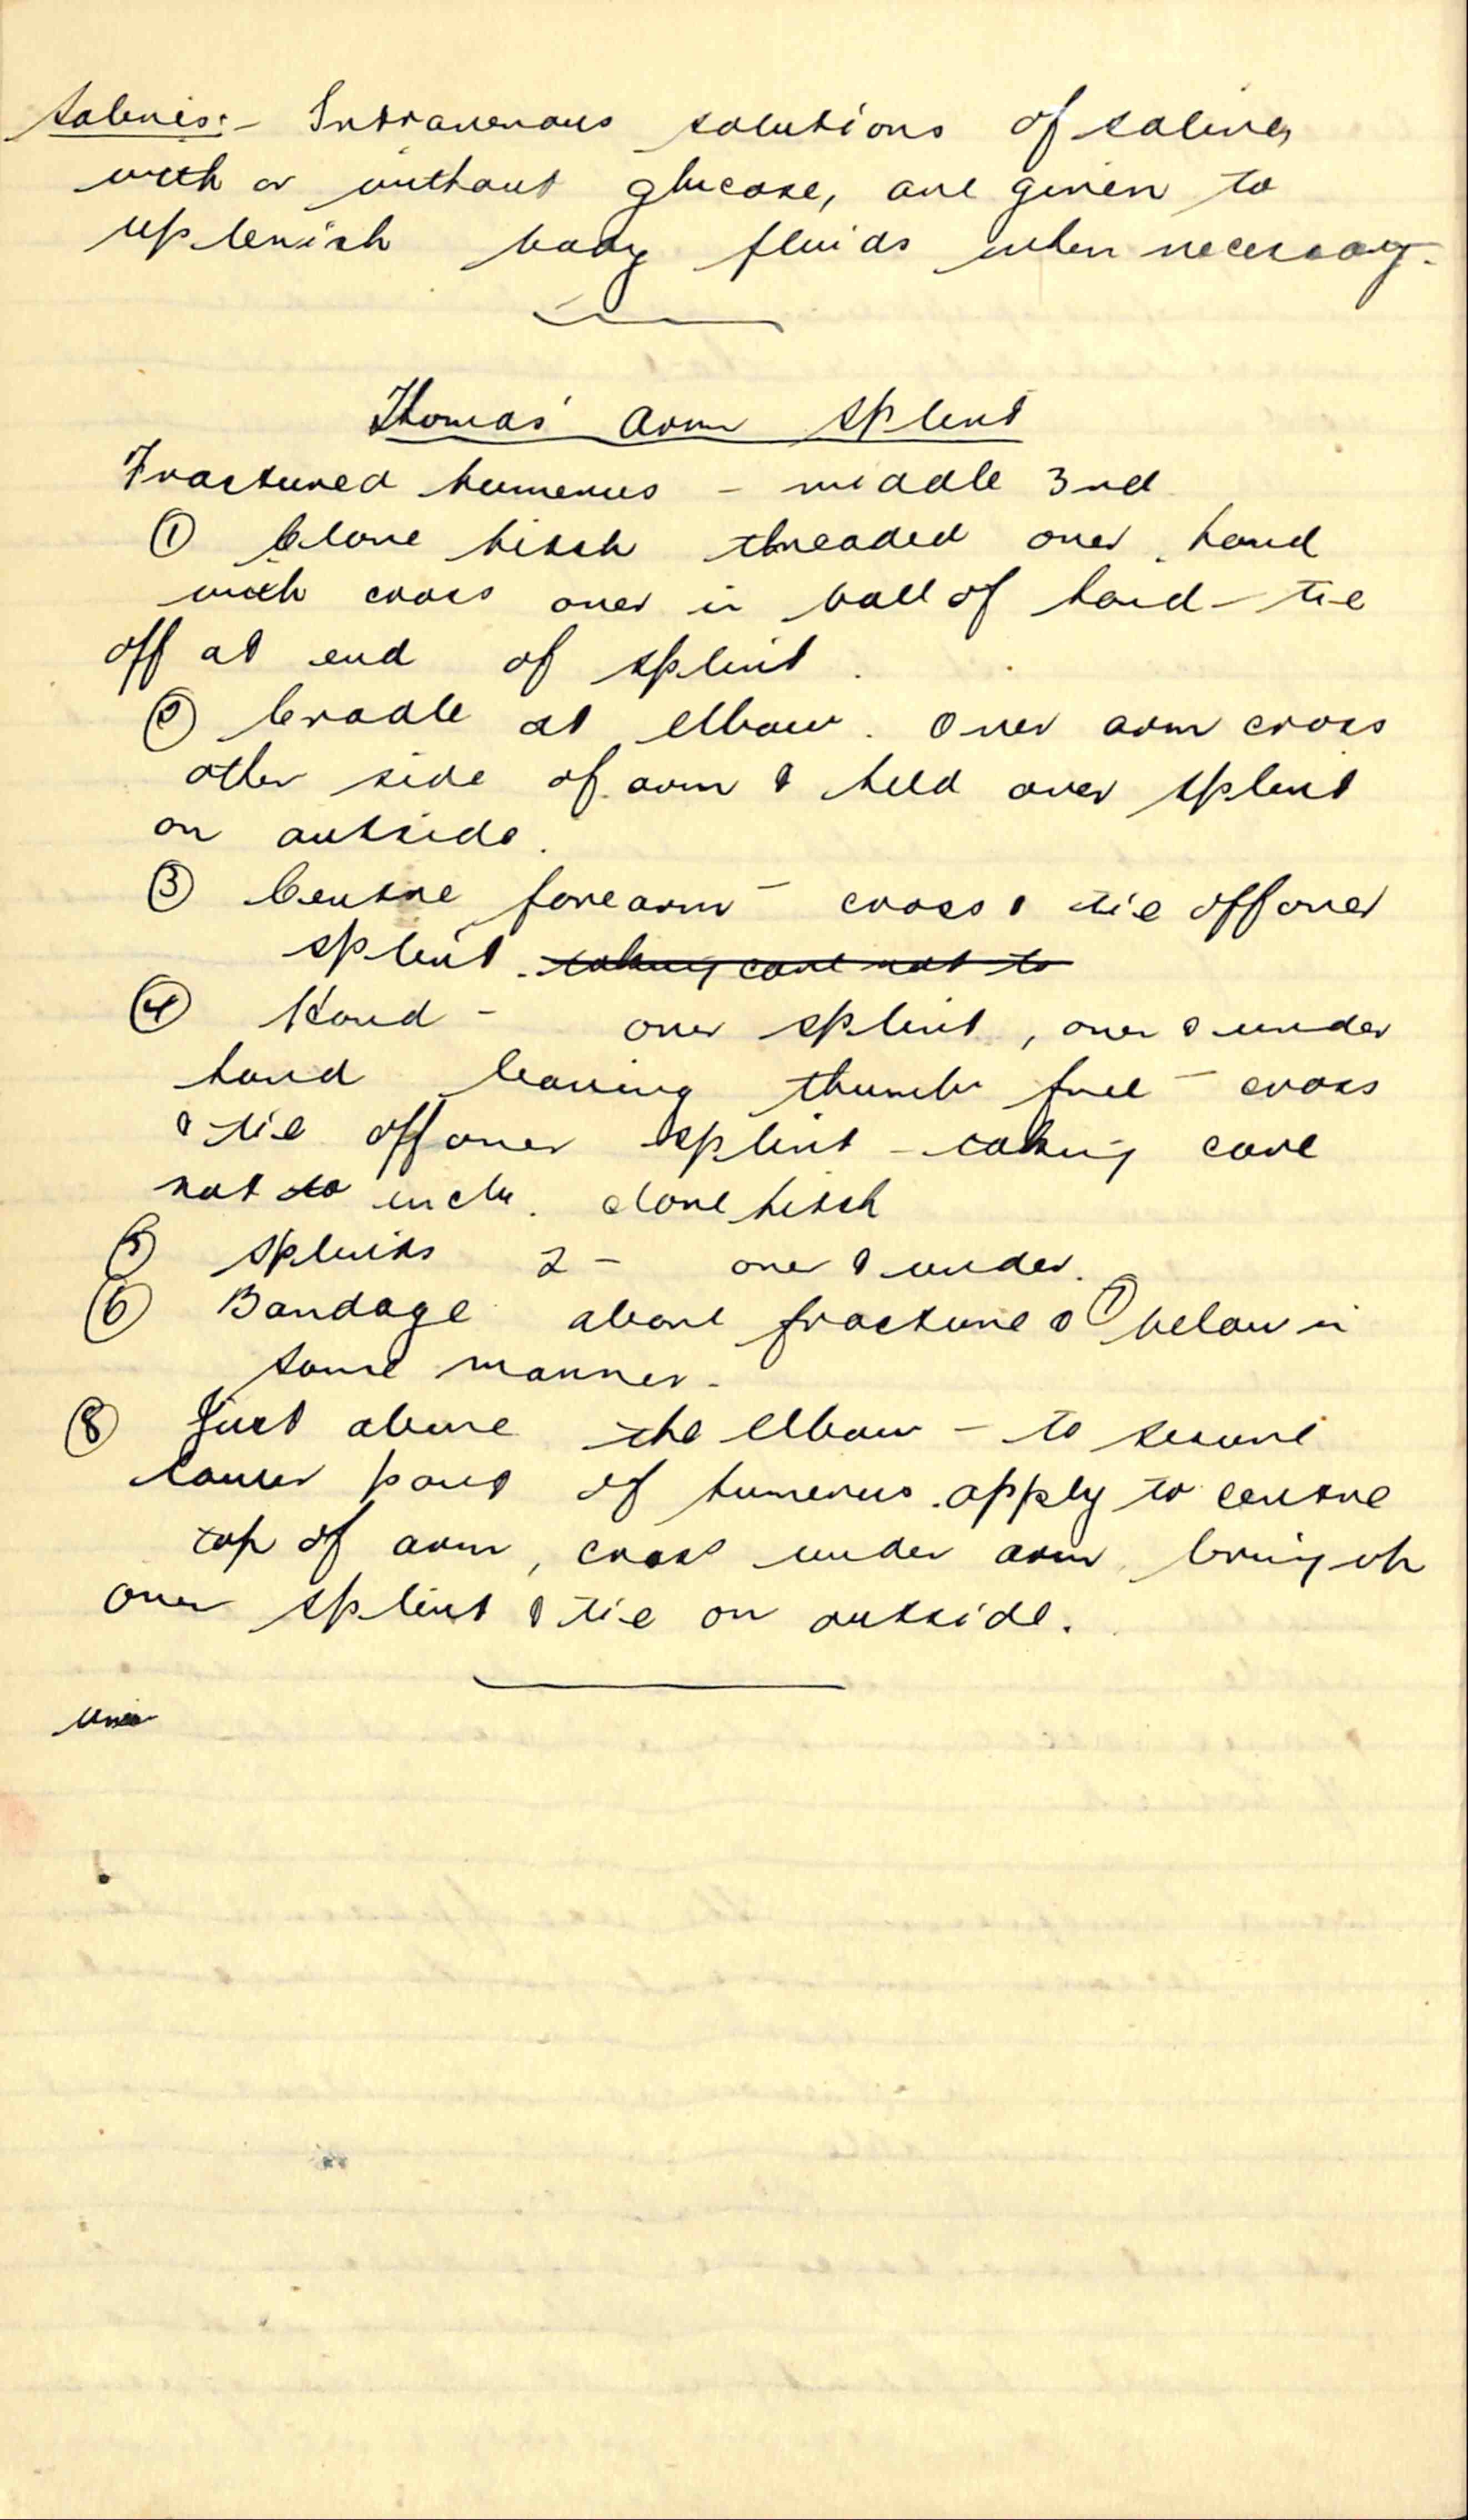 Salines:- Intravenous solutions of saline,
with or without glucose, are given to
replenish body fluids when necessary.
Thomas' Arm Splint
Fractured humerus - middle 3rd
① Clove hitch threaded over hand
with cross over in ball of hand - tie
off at end of splint.
② Cradle at elbow. Over arm cross
other side of arm & held over splint
on outside.
③ Centre forearm - cross & tie off over
splint. taking care not to
④ Hand - over splint, over & under
hand leaving thumb free - cross
& tie off over splint - taking care
not to incl. clove hitch
⑤ Splints 2 - over & under.
⑥ Bandage above fracture & ⑦ below in
same manner.
⑧ Just above the elbow - to secure
lower part of humerus. apply to centre
top of arm, cross under arm, bring up
over splint & tie on outside.